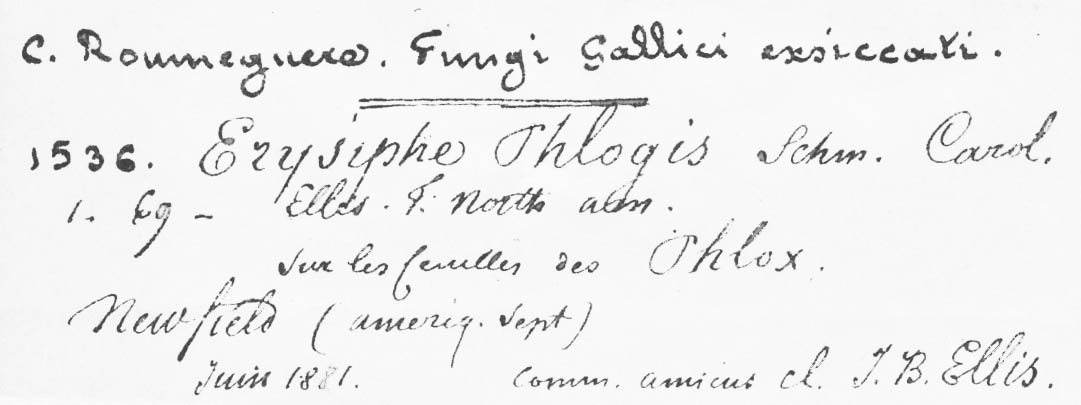 C. Roumeguere. Fungi Gallici exsiccati.
1536. Erysiphe Phlogis Schm. Carol.
1. 69 - Ellis. F. North am.
sur les feuilles des Phlox.
Newfield (ameriq. sept)
Juin 1881. comm. amicus cl. J. B. Ellis.